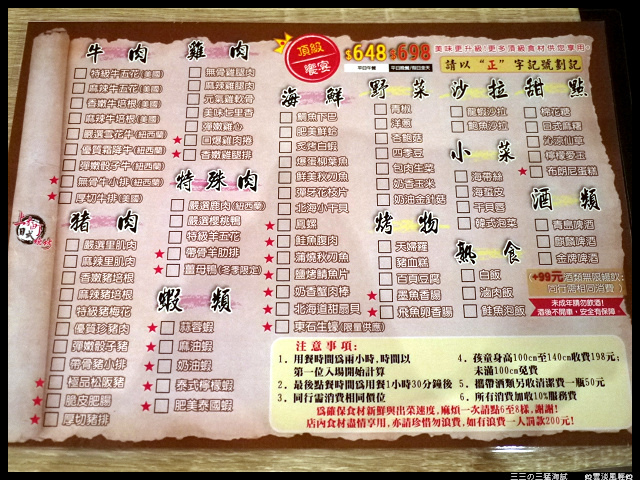 牛肉
特級牛五花(美國)
麻辣牛五花(美國)
香嫩牛培根(美國)
麻辣牛培根(美國)
嚴選雪花牛(紐西蘭)
優質霜降牛(紐西蘭)
彈嫩骰子牛(紐西蘭)
★無骨牛小排(美國)
★厚切牛排(美國)
豬肉
嚴選里肌肉
麻辣里肌肉
香嫩豬培根
麻辣豬培根
特級豬梅花
優質珍豬肉
彈嫩骰子豬
帶骨豬小排
★極品松阪豬
★脆皮肥腸
★厚切豬排
雞肉
無骨雞腿肉
麻辣雞腿肉
元氣雞軟骨
美味七里香
彈嫩雞心
★香嫩雞腿排
特殊肉
嚴選鹿肉(紐西蘭)
嚴選櫻桃鴨
特級羊五花
★帶骨羊肋排
★薑母鴨(冬季限定)
蝦類
★蒜蓉蝦
★麻辣蝦
★奶油蝦
★泰式檸檬蝦
★肥美泰國蝦
頂級饗宴
$648
$698
平日午餐
平日晚餐/假日全天
美味更升級!更多頂級食材供您享用
請以"正"字記號劃記
海鮮
鯛魚下巴
肥美鮮蛤
炙烤白蝦
爆蛋柳葉魚
鮮美秋刀魚
彈牙花枝片
北海小干貝
★鳳螺
★鮭魚腹肉
★蒲燒秋刀魚
★鹽烤鯖魚片
★奶香蟹肉棒
★北海道甜扇貝
★東石生蠔(限量供應)
野菜
青椒
洋蔥
杏鮑菇
四季豆
包肉生菜
奶香玉米
奶油金針菇
烤物
天婦羅
豬血糕
百頁豆腐
★墨魚香腸
★飛魚卵香腸
沙拉
龍蝦沙拉
鮑魚沙拉
小菜
海帶絲
海蜇皮
干貝唇
韓式泡菜
熟食
白飯
滷肉飯
鮭魚泡飯
甜點
棉花糖
日式麻糬
沁涼仙草
檸檬愛玉
★布朗尼蛋糕
酒類
青島啤酒
麒麟啤酒
金牌啤酒
+99元酒類無限暢飲
同行需相同消費
未成年請勿飲酒!
酒後不開車,安全有保障
注意事項:
1. 用餐時間爲兩小時,時間以
第一位入場開始計算
2. 最後點餐時間爲用餐1小時30分鐘後
3. 同行需消費相同價位
4. 孩童身高100cm至140cm收費198元;
未滿100cm免費
5. 攜帶酒類另收清潔費一瓶50元
6. 所有消費加收10%服務費
爲確保食材新鮮與出菜速度,麻煩一次請點6至8樣,謝謝!
店內食材盡情享用,亦請珍惜勿浪費,如有浪費一人罰款200元!